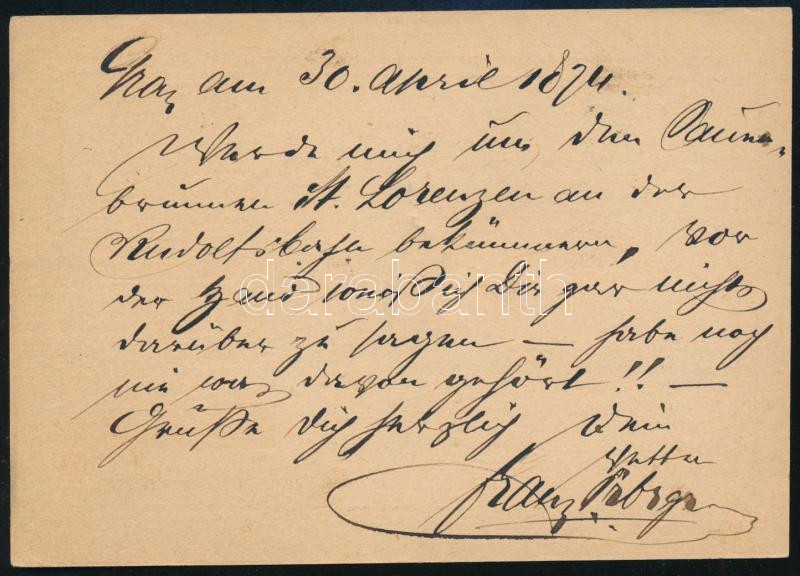 Graz am 30. April 1874.
Werde mich um den Sauer-
brunnen St. Lorenzen an der
Rudolfsbahn bekümmern, vor
der Hand weiß ich Dir gar nichts
darüber zu sagen — habe noch
nie was davon gehört!! —
Grüße Dich herzlich Dein
Vetter
Franz
darabanth